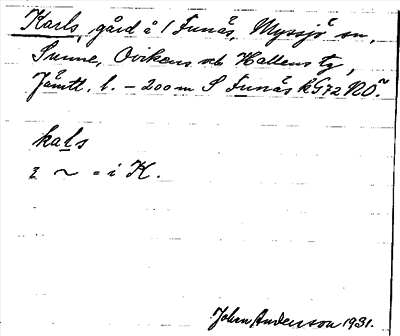 Karls, gård å 1 Funäs, Myssjö sn,
Sunne, Ovikens och Hallens tg,
Jämtl. l. – 200 m S Funäs k G72 NO.
kals
i ~ = i K.
John Anderson 1931.